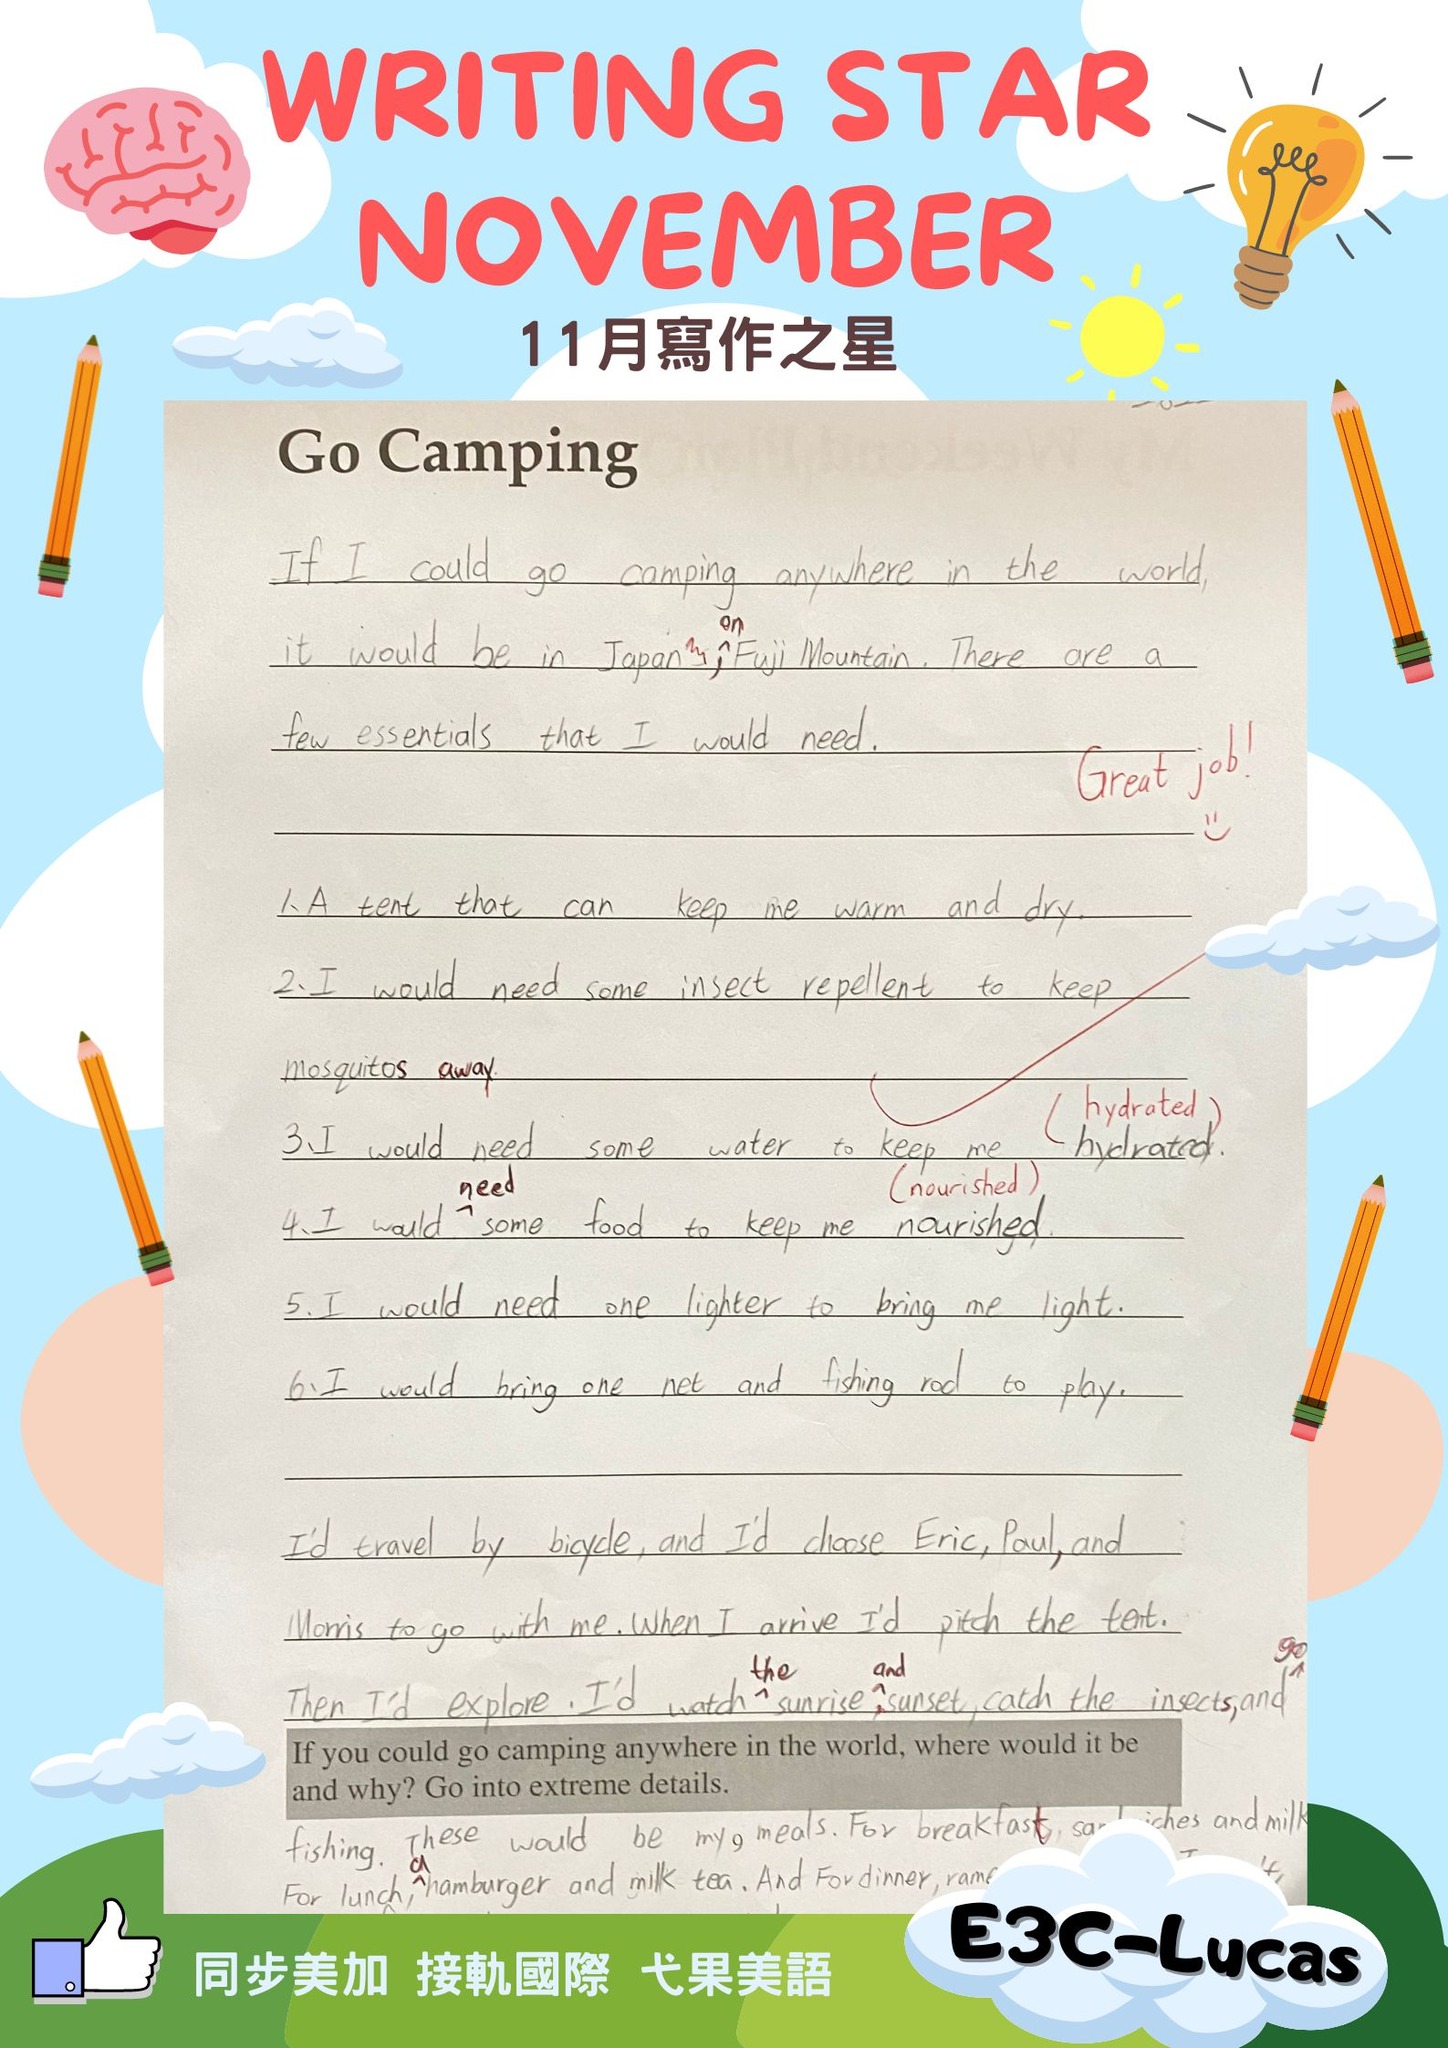 WRITING STAR
NOVEMBER
11月寫作之星
Go Camping
If I could go camping anywhere in the world,
on
it would be in Japan, Fuji Mountain. There are a
few essentials that I would need.
Great job!
1. A tent that can keep me warm and dry.
2. I would need some insect repellent to keep
mosquitos away.
(hydrated)
3. I would need some water to keep me hydrated.
need (nourished)
4. I would some food to keep me nourished.
5. I would need one lighter to bring me light.
6. I would bring one net and fishing rod to play.
I'd travel by bicycle, and I'd choose Eric, Paul, and
Morris to go with me. When I arrive I'd pitch the tent.
the and go
Then I'd explore. I'd watch sunrise, sunset, catch the insects, and
If you could go camping anywhere in the world, where would it be
and why? Go into extreme details.
fishing. These would be my meals. For breakfast, and milk
a
For lunch, hamburger and milk tea. And For dinner,
同步美加 接軌國際 弋果美語
E3C-Lucas